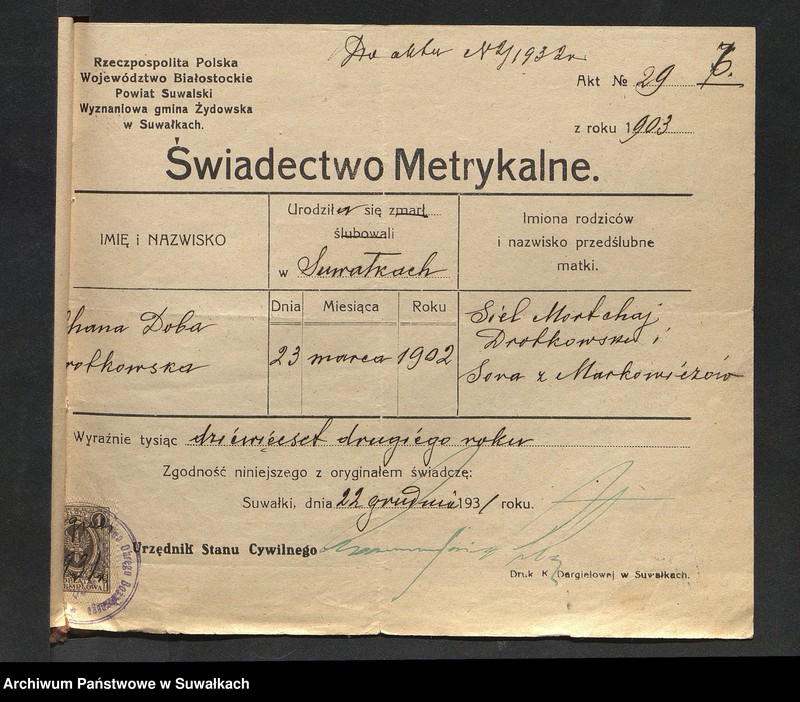 Do aktu N 2/1932 r.
Rzeczpospolita Polska
Województwo Białostockie
Powiat Suwalski
Wyznaniowa gmina Żydowska
w Suwałkach.
Akt № 29
z roku 1903
Świadectwo Metrykalne.
IMIĘ i NAZWISKO
Urodziła się zmarł
ślubowali
w Suwałkach
Imiona rodziców
i nazwisko przedślubne
matki.
Dnia Miesiąca Roku
hana Doba
rotkowska
23 marca 1902
Siel Mortchaj
Drotkowski i
Sora z Markowiczów
Wyraźnie tysiąc dziewięćset drugiego roku
Zgodność niniejszego z oryginałem świadczę:
Suwałki, dnia 22 grudnia 1931 roku.
Urzędnik Stanu Cywilnego
Druk K. Dargielowej w Suwałkach.
Archiwum Państwowe w Suwałkach